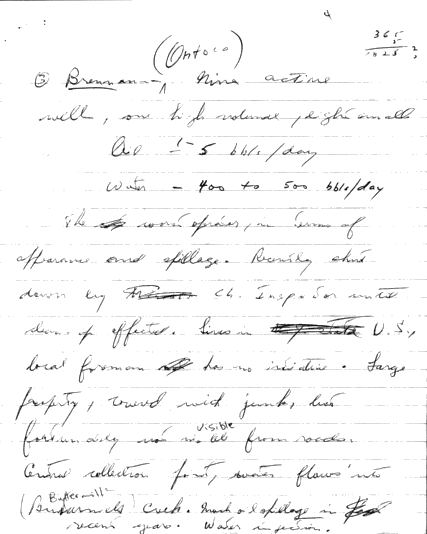 4
365
5
1825
(Ontoco)
③ Brennan - Nine active
well, one high volume, eight small
Oil - 1-5 bbls/day
Water - 400 to 500 bbls/day
The worst operator, in terms of
appearance and spillage. Recently shut
down by Ch. Inspector until
clean-up effected. Lives in U.S.,
local foreman has no initiative. Large
property, covered with junk, but
fortunately not visible from roads.
Central collection point, water flows into
(Buttermilk) Creek. Much oil spillage in
recent years. Water injection.